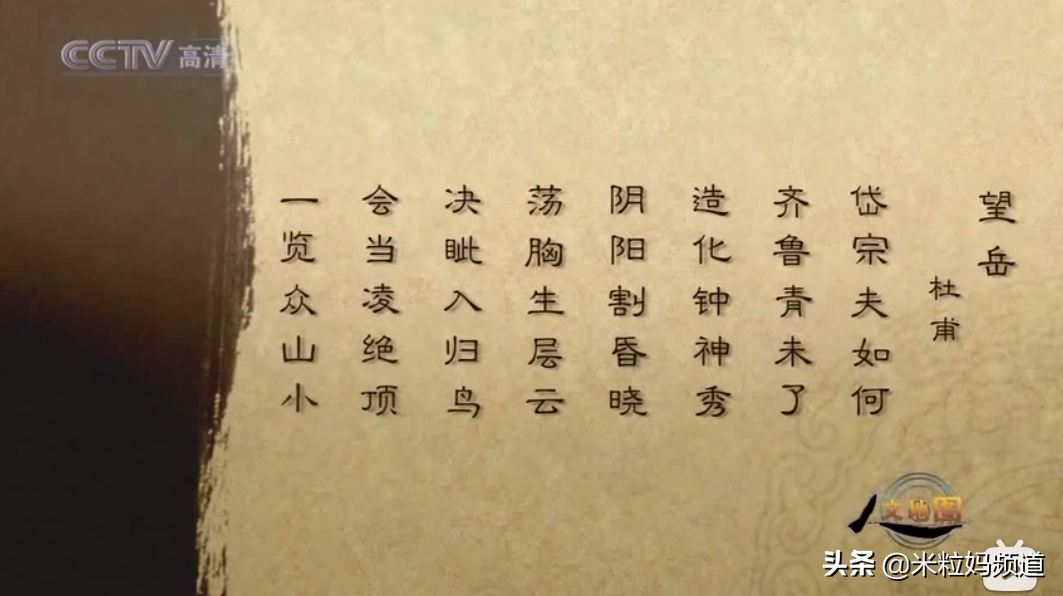 CCTV 高清
望岳
杜甫
岱宗夫如何
齐鲁青未了
造化钟神秀
阴阳割昏晓
荡胸生层云
决眦入归鸟
会当凌绝顶
一览众山小
人文地图
头条 @米粒妈频道